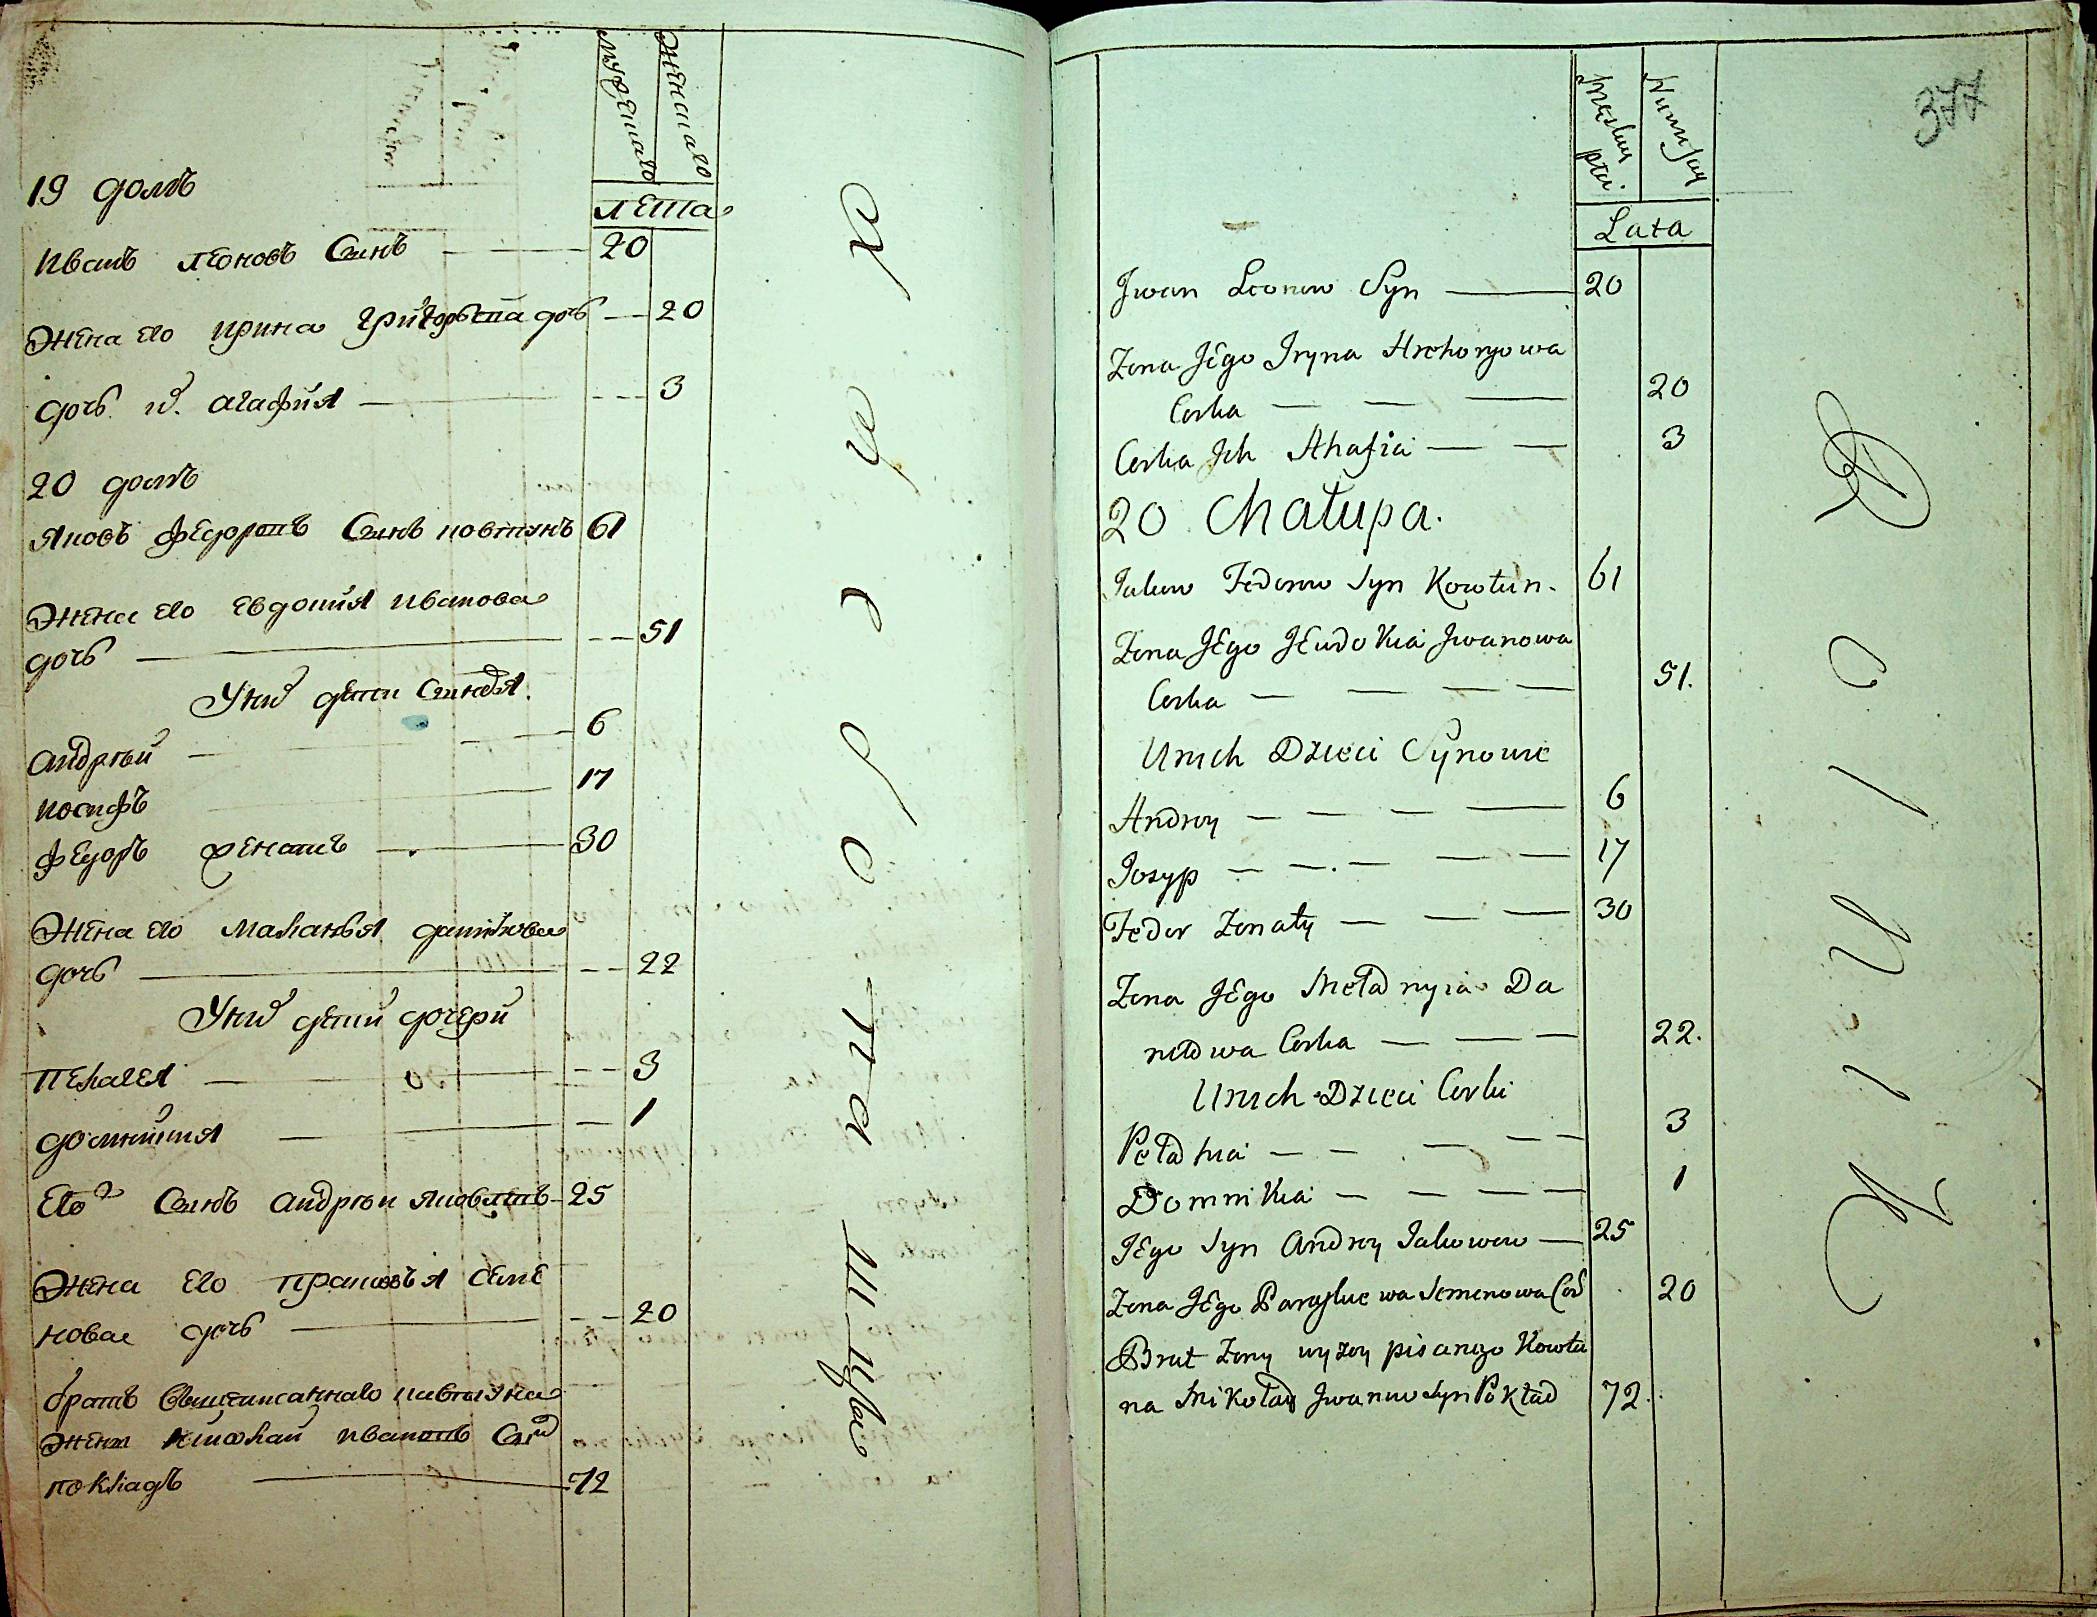 мужескаго
женскаго
19 домъ
лета
Иванъ Леоновъ Сынъ 20
Жена его Ирина Григорьева дочь 20
дочь их Агафия 3
20 домъ
Яковъ Федоровъ Сынъ Ковтунъ 61
Жена его Евдокия Иванова
дочь 51
У них дети Сыновья
Андрей 6
Иосифъ 17
Федоръ женатъ 30
Жена его Маланья данилова
дочь 22
У них дети дочери
Пелагея 3
домникия 1
Его Сынъ Андрей Яковлевъ 25
Жена его Прасковья Семе
нова дочь 20
братъ Вышеписаннаго Ковтуна
жены Николай Ивановъ Сынъ
покладъ 72
męskiey
płci
Lata
377
Jwan Leonow Syn 20
Zona JEgo Iryna Hrehoryowa
Corka 20
Corka Jch Ahafia 3
20 Chałupa.
Jakuw Fedorow Syn Kowtun. 61
Zona JEgo JEwdokia Jwanowa
Corka 51.
U nich Dzieci Synowie
Andrey 6
Josyp 17
Fedor Zonaty 30
Zona JEgo Meładnyia Da
niłowa Corka 22.
U nich Dzieci Corki
Peładhia 3
Domnikia 1
JEgo Syn Andrey Jakowow 25
Zona JEgo Paraskewa Semenowa Cor 20
Brat Zony wyzey pisanego Kowtu
na Mikołay Jwanow Syn Pokład 72.